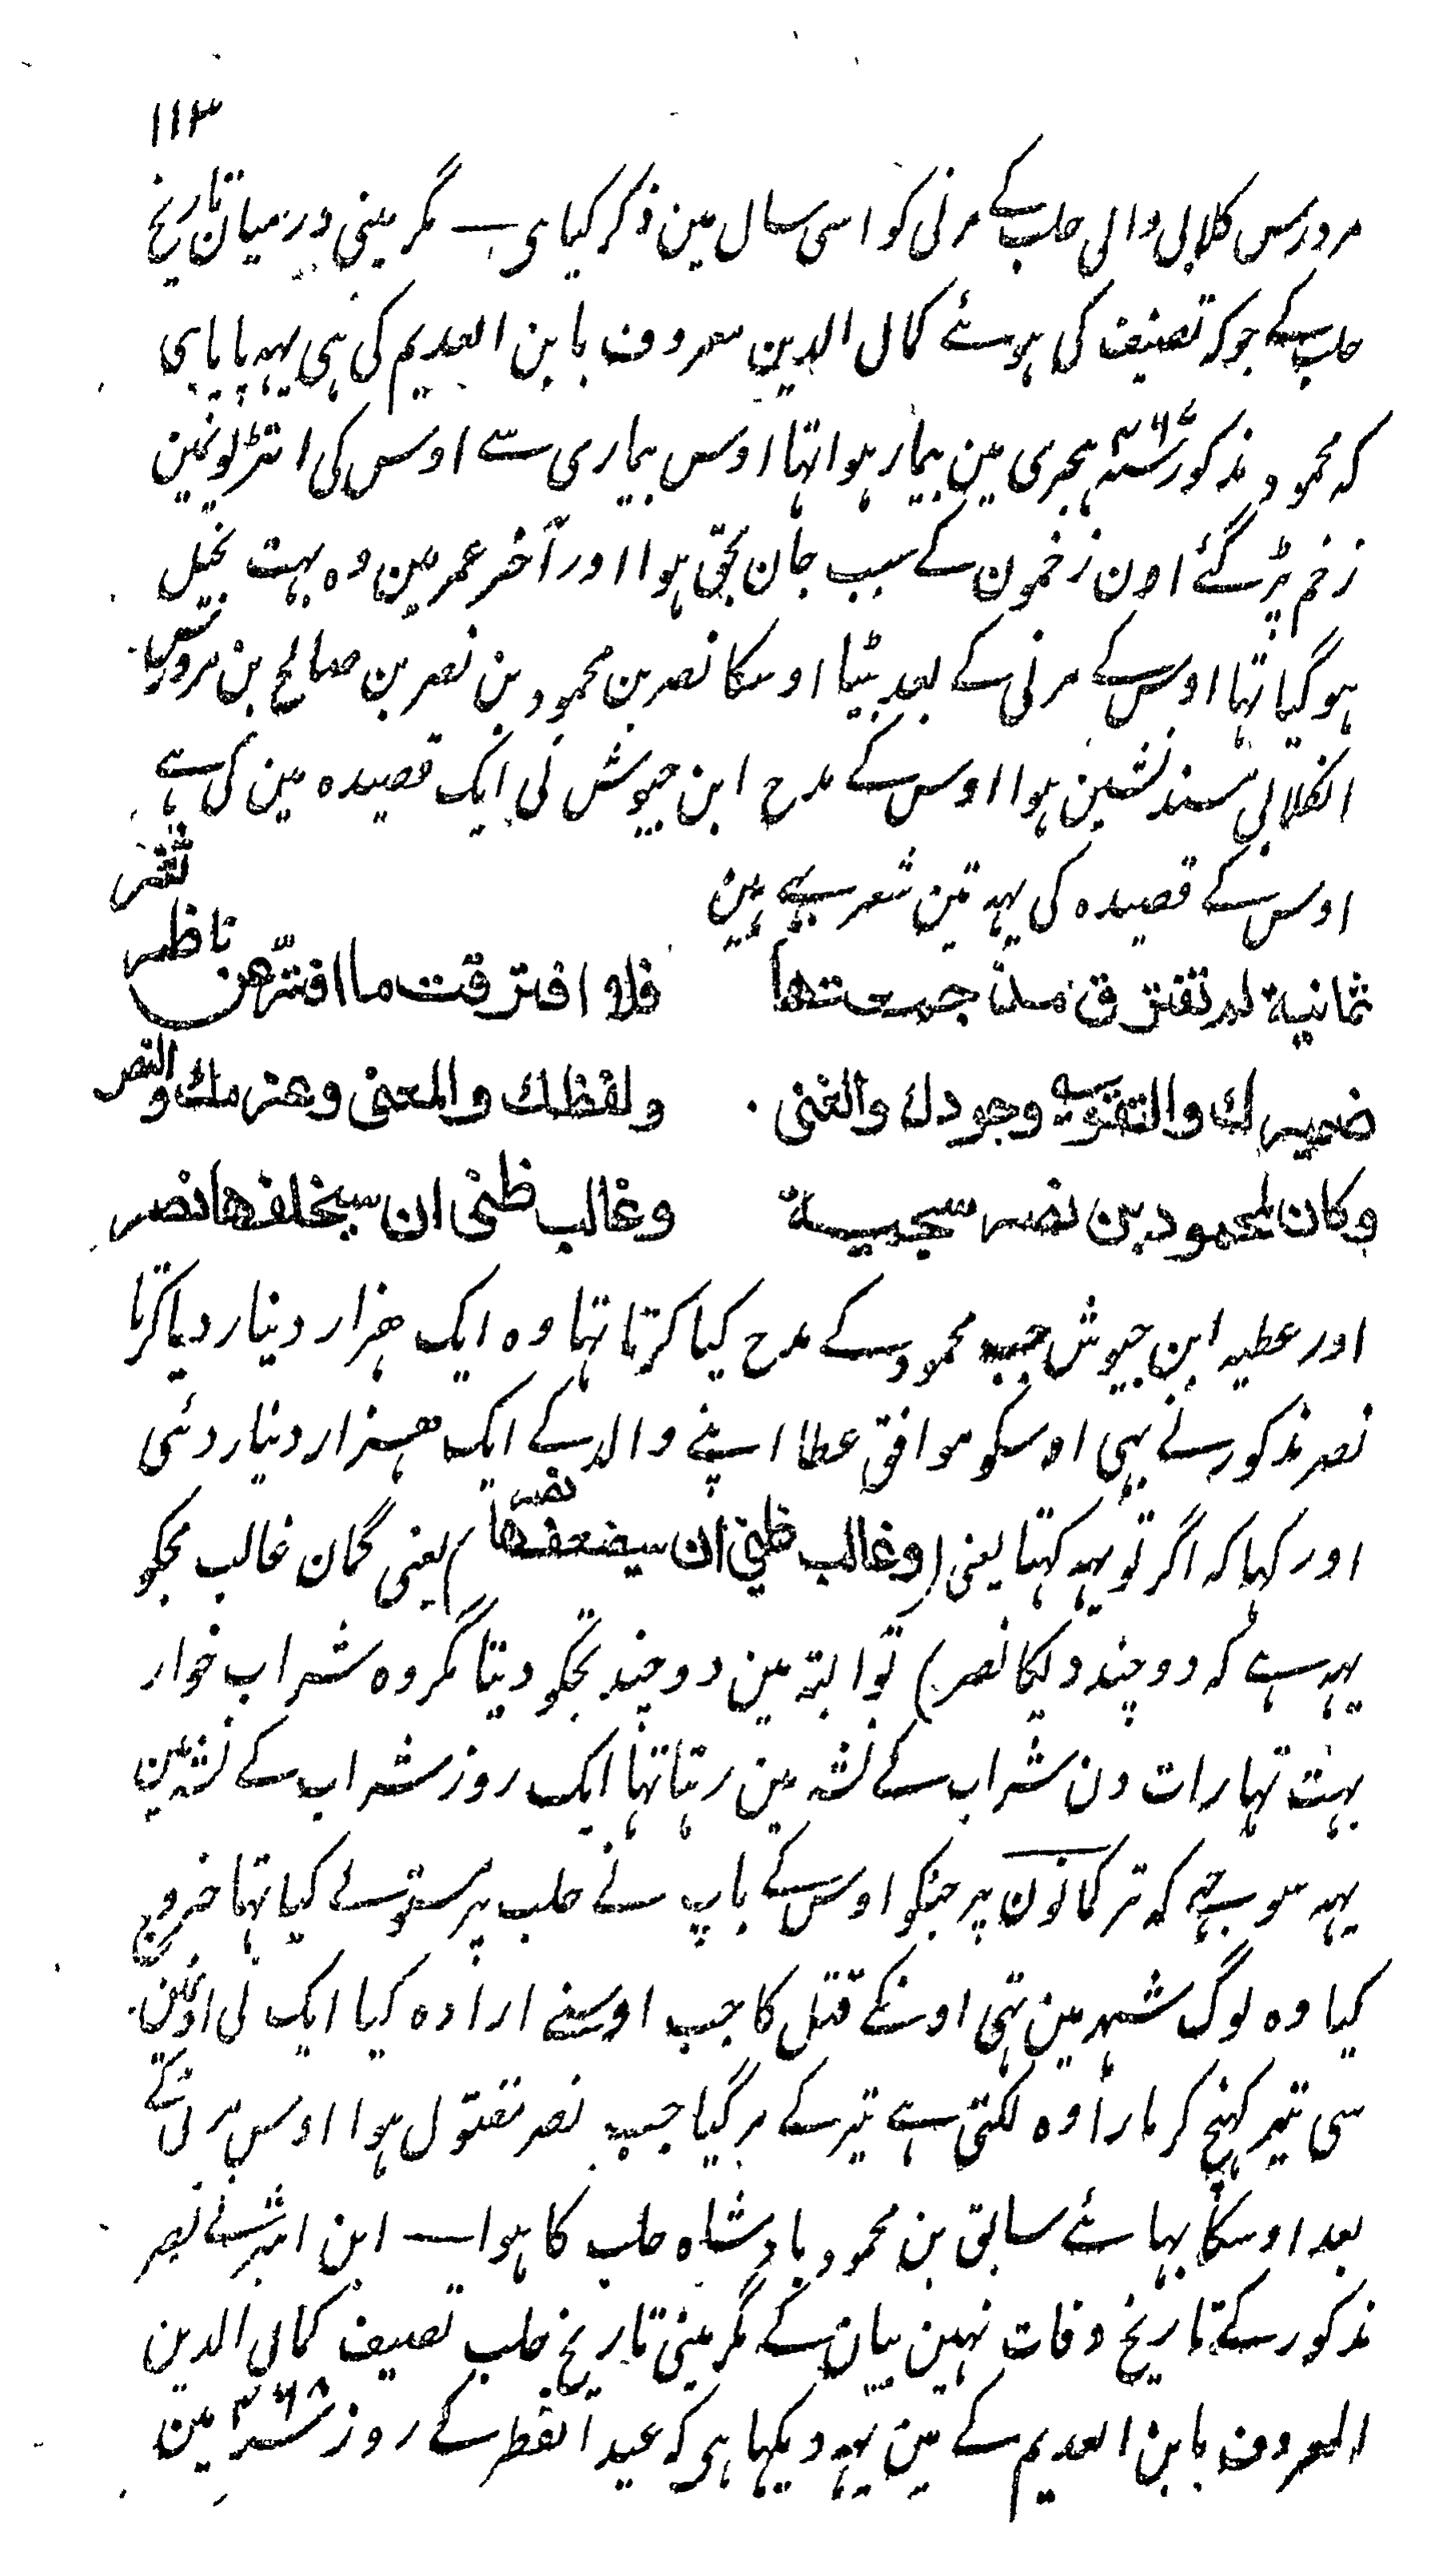 ۱۱۳
مرداس کلابی والی حلب کے مرنی کو اسی سال مین ذکر کیا ہی۔ مگر مینی درمیان تاریخ
حلب کے جو کہ تصنیف کی ہوئے کمال الدین معروف بابن العدیم کی ہی یہہ پایا ہی
کہ محمود مذکور سنہ ۴۶۷ ہجری مین بیمار ہوا تہا اوس بیماری سے اوس کی انتڑلونمین
زخم پڑ گئے اون زخمون کے سبب جان بحق ہوا اور آخر عمر مین وہ بہت بخیل
ہو گیا تہا اوس کے مرنی کے بعد بیٹا اوسکا نصر بن محمود بن نصر بن صالح بن مرداس
الکلابی مسند نشین ہوا اوس کے مدح ابن جیوش نی ایک قصیدہ مین کی ہے
اوس کے قصیدہ کی یہہ تین شعر یہے ہین
ثمانية لم تفترق مذ جمعتها فلا افترقت ما افترّ عن ناظر ثغر
ضميرك والتقوى وجودك والغنى ولفظك والمعنى وعزمك والنصر
وكان لمحمود بن نصر سجية وغالب ظنى ان سيخلفها نصر
اور عطیہ ابن جیوش جب محمود کے مدح کیا کرتا تہا وہ ایک ہزار دینار دیا کرتا
نصر مذکور نے بہی اوسکو موافق عطا اپنے والد کے ایک ہزار دینار دئی
اور کہا کہ اگر تو یہہ کہتا یعنی (وغالب ظني ان سيضعفها نصر) یعنی گمان غالب مجکو
یہہ ہے کہ دو چند دیگا نصر) تو البتہ مین دو چند تجکو دیتا مگر وہ شراب خوار
بہت تہا رات دن شراب کے نشہ مین رہتا تہا ایک روز شراب کے نشہ مین
یہہ سوجہے کہ ترکمانون پر جنکو اوس کے باپ نے حلب پر ستولے کیا تہا خروج
کیا وہ لوگ شہر مین تہی اونکے قتل کا جب اوسنے ارادہ کیا ایک نی اونمین
سی تیر کہنچ کر مارا وہ لگتی ہے تیر کے مر گیا جب نصر مقتول ہوا اوس مرنی کے
بعد اوسکا بہائے سابق بن محمود بادشاہ حلب کا ہوا۔ ابن اثیر نے نصر
مذکور کے تاریخ وفات نہین بیان کے مگر مینی تاریخ حلب تصنیف کمال الدین
المعروف بابن العدیم کے مین یہہ دیکہا ہی کہ عید الفطر کے روز سنہ ۴۶۸ مین